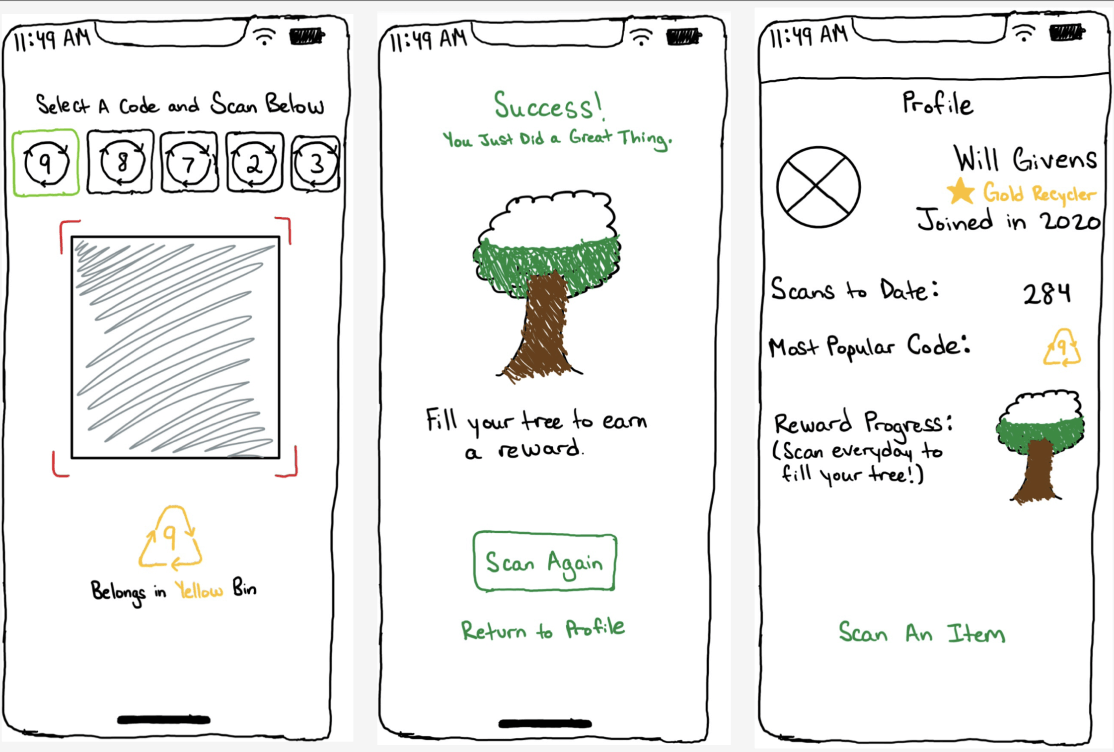 11:49 AM
Select A Code and Scan Below
9 8 7 2 3
9
Belongs in Yellow Bin
11:49 AM
Success!
You Just Did a Great Thing.
Fill your tree to earn
a reward.
Scan Again
Return to Profile
11:49 AM
Profile
Will Givens
Gold Recycler
Joined in 2020
Scans to Date: 284
Most Popular Code: 9
Reward Progress:
(Scan everyday to
fill your tree!)
Scan An Item